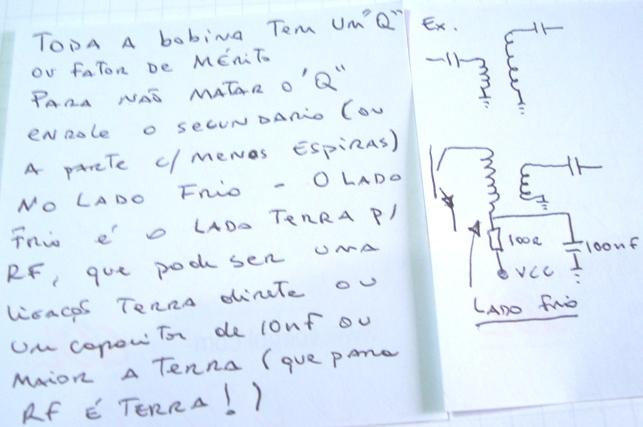 TODA A bobina TEM UM "Q"
OU FATOR DE MÉRITO
PARA NÃO MATAR O "Q"
ENROLE O SECUNDARIO (OU
A PARTE C/ MENOS ESPIRAS)
NO LADO FRIO - O LADO
FRIO É O LADO TERRA P/
RF, que pode ser UMA
LIGAÇOS TERRA direte OU
UM capacitor de 10nf OU
MAIOR A TERRA (que para
RF É TERRA!)
Ex.
100R
100nf
VCC
LADO FRIO